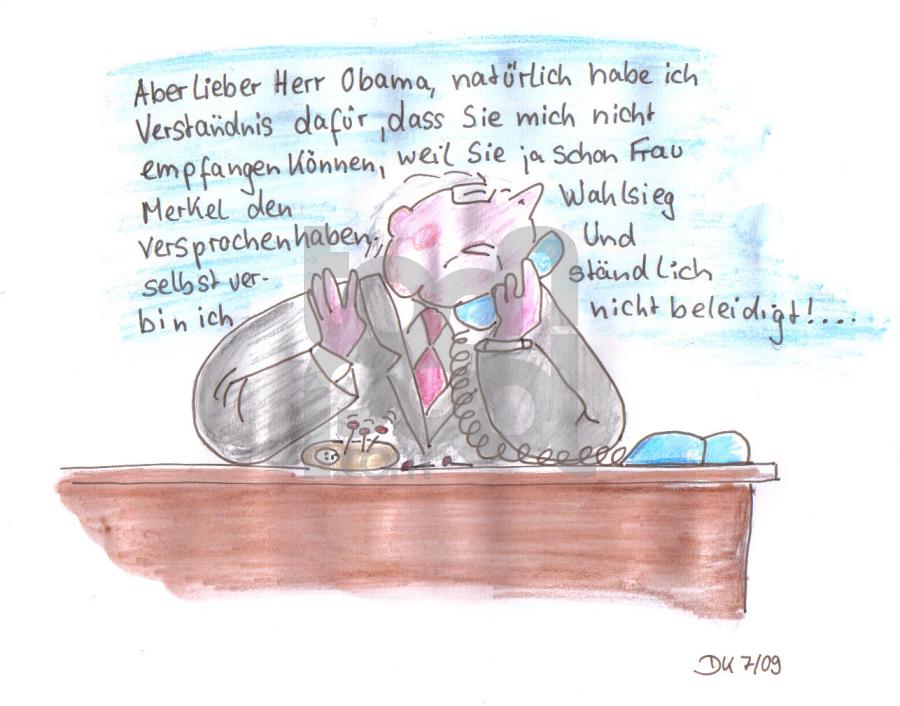 Aber Lieber Herr Obama, natürlich habe ich
Verständnis dafür, dass Sie mich nicht
empfangen können, weil Sie ja schon Frau
Merkel den Wahlsieg
versprochen haben, Und
selbstver- ständlich
bin ich nicht beleidigt!....
DK 7/09